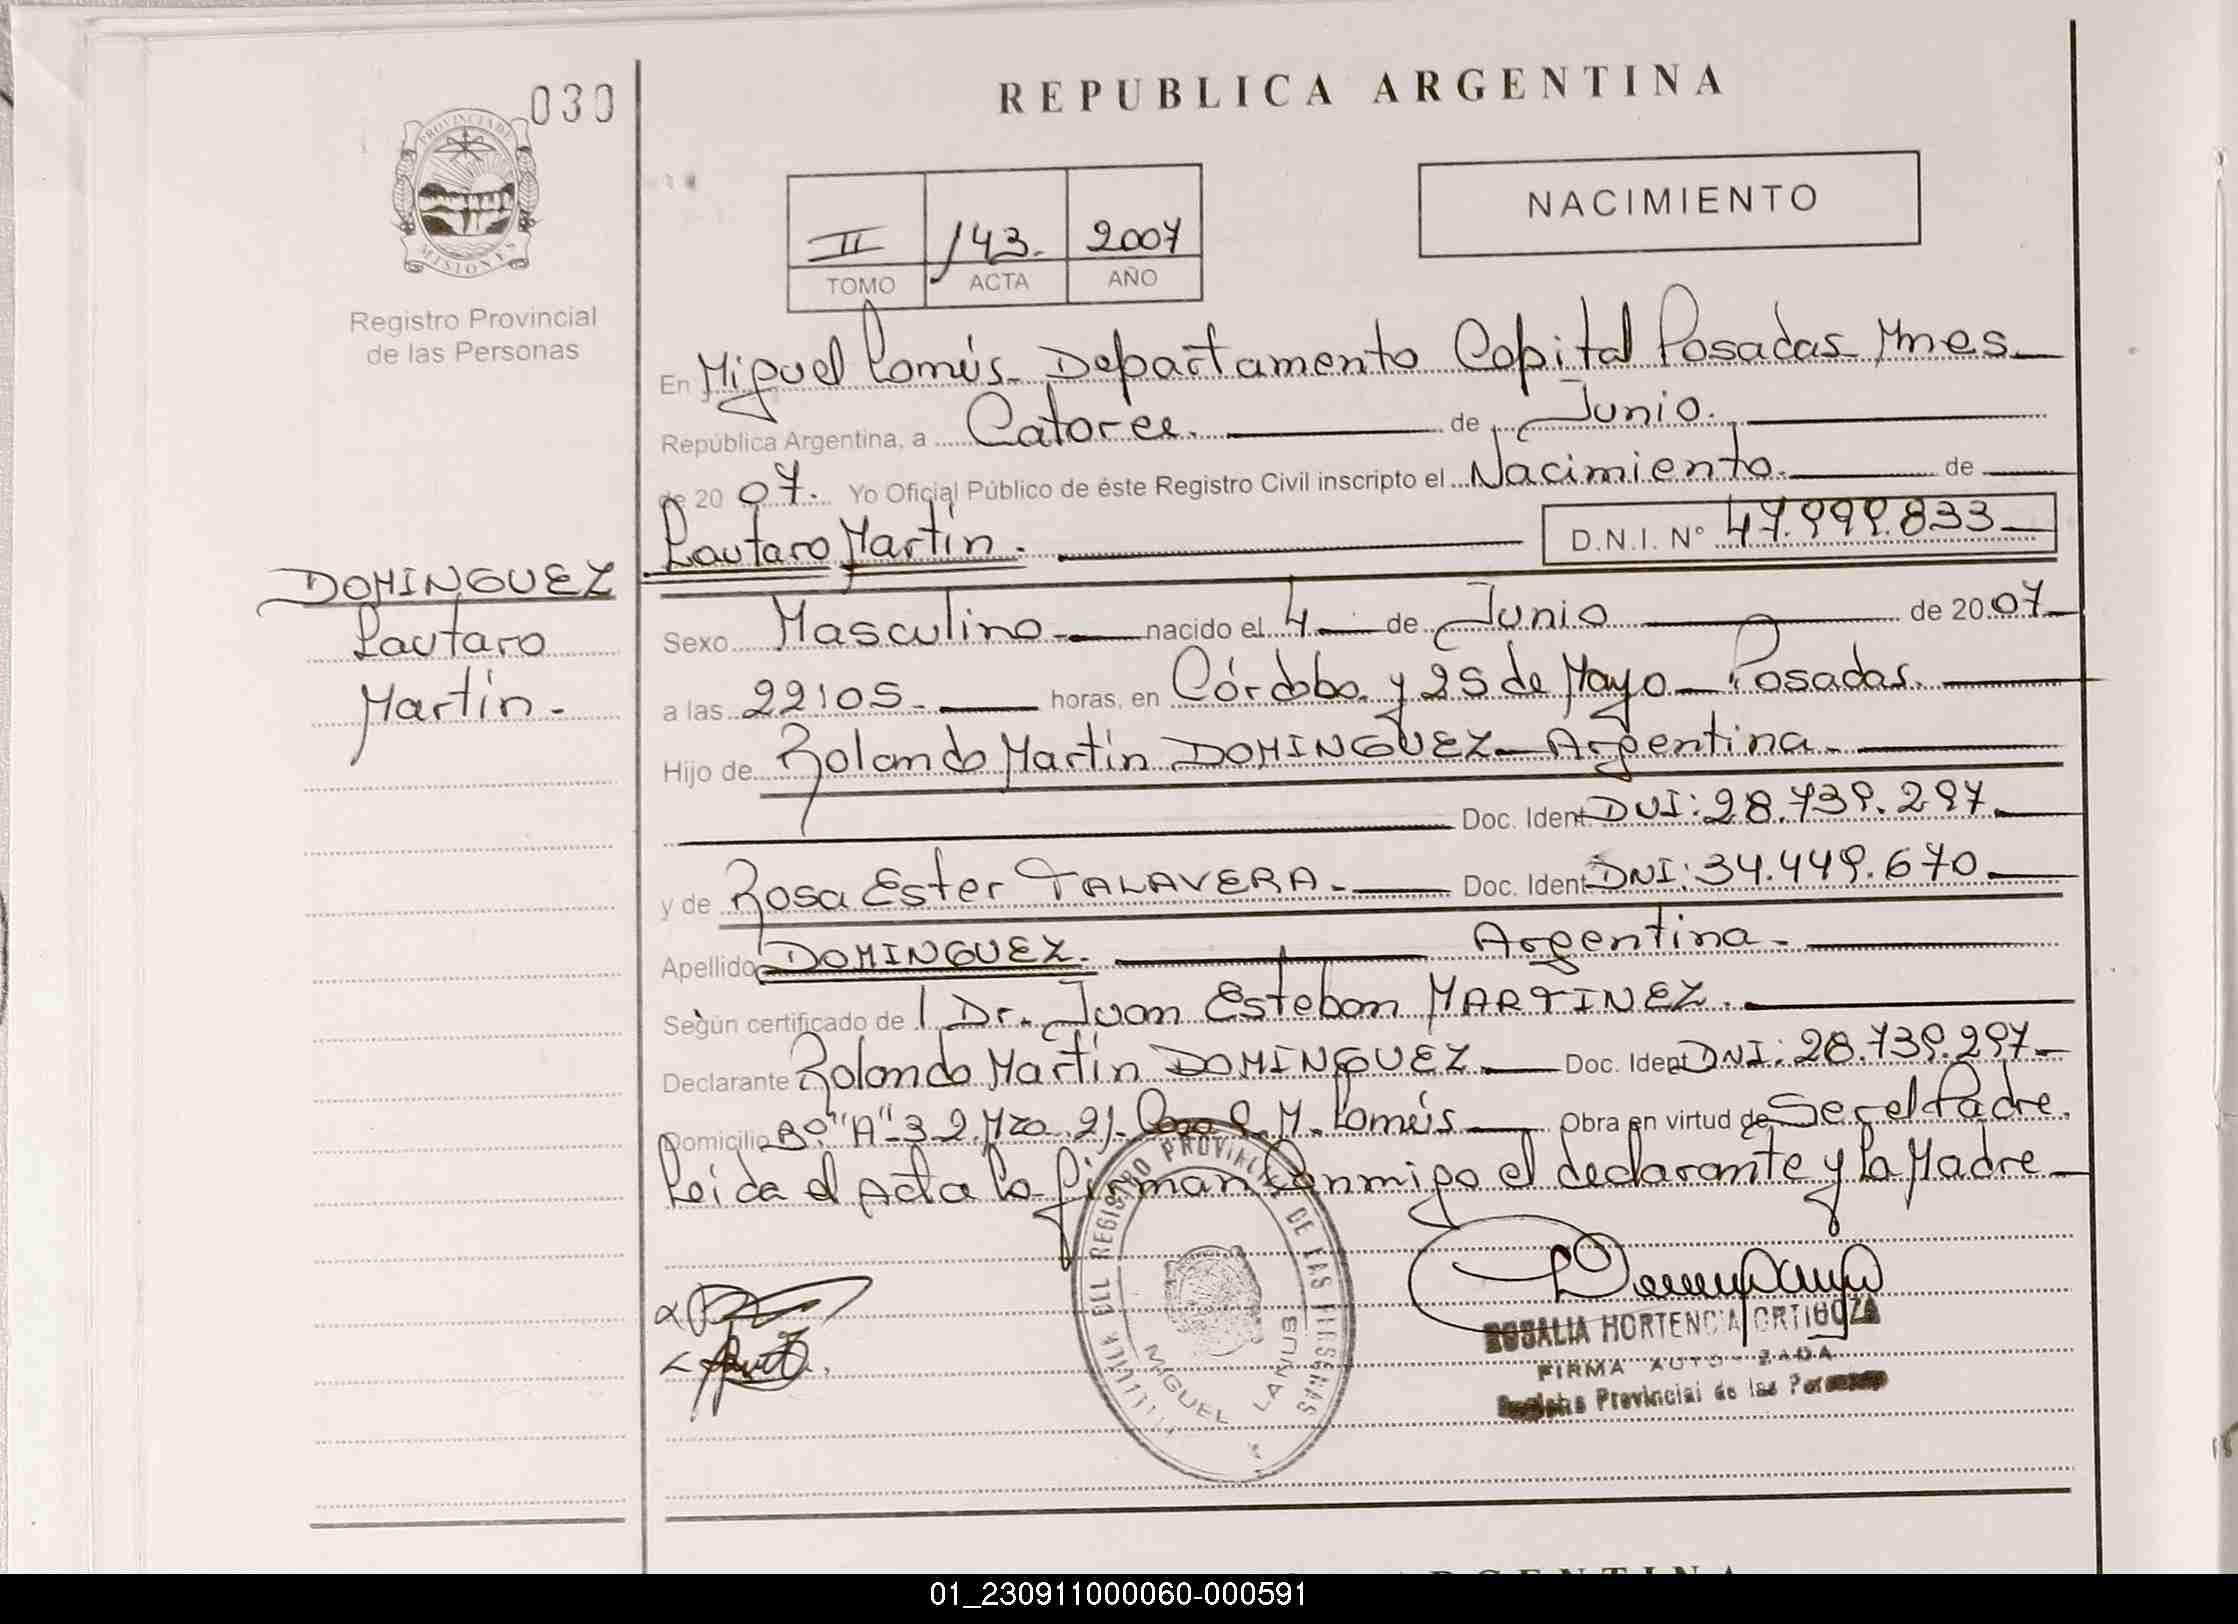 030
PROVINCIA DE
MISIONES
Registro Provincial
de las Personas
REPUBLICA ARGENTINA
NACIMIENTO
II 143. 2007
TOMO ACTA AÑO
En Miguel Lanús - Departamento Capital Posadas Mnes
República Argentina, a Catorce. de Junio.
de 20 07. Yo Oficial Público de éste Registro Civil inscripto el Nacimiento. de
Lautaro Martín. D.N.I. Nº 47.999.833
DOMINGUEZ
Lautaro
Martín.-
Sexo Masculino nacido el 4 de Junio de 2007
a las 22:05 horas, en Córdoba y 25 de Mayo - Posadas.
Hijo de Rolando Martín DOMINGUEZ - Argentina.
Doc. Ident DNI: 28.739.297.
y de Rosa Ester TALAVERA. Doc. Ident DNI: 34.449.670
Apellido DOMINGUEZ. Argentina.
Según certificado de Dr. Juan Esteban MARTINEZ.
Declarante Rolando Martín DOMINGUEZ Doc. Ident DNI: 28.739.297
Domicilio Bº "A" 3-2 Mza 21 M. Lanús Obra en virtud de Ser el Padre.
Leida el Acta la firman conmigo el declarante y la Madre
DEL REGISTRO PROVINCIAL DE LAS PERSONAS
MIGUEL LANUS
ROSALIA HORTENCIA ORTIGOZA
FIRMA AUTORIZADA
Registro Provincial de las Personas
ARGENTINA
01_230911000060-000591